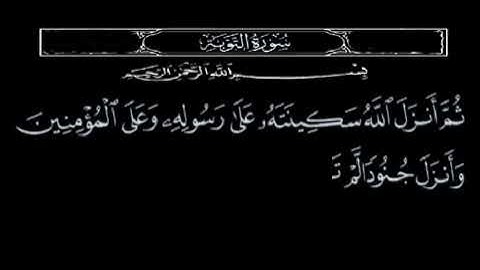 سُورَةُ التَّوْبَةِ
بِسْمِ اللَّهِ الرَّحْمَٰنِ الرَّحِيمِ
ثُمَّ أَنزَلَ اللَّهُ سَكِينَتَهُۥ عَلَىٰ رَسُولِهِۦ وَعَلَى الْمُؤْمِنِينَ
وَأَنزَلَ جُنُودًا لَّمْ تَ